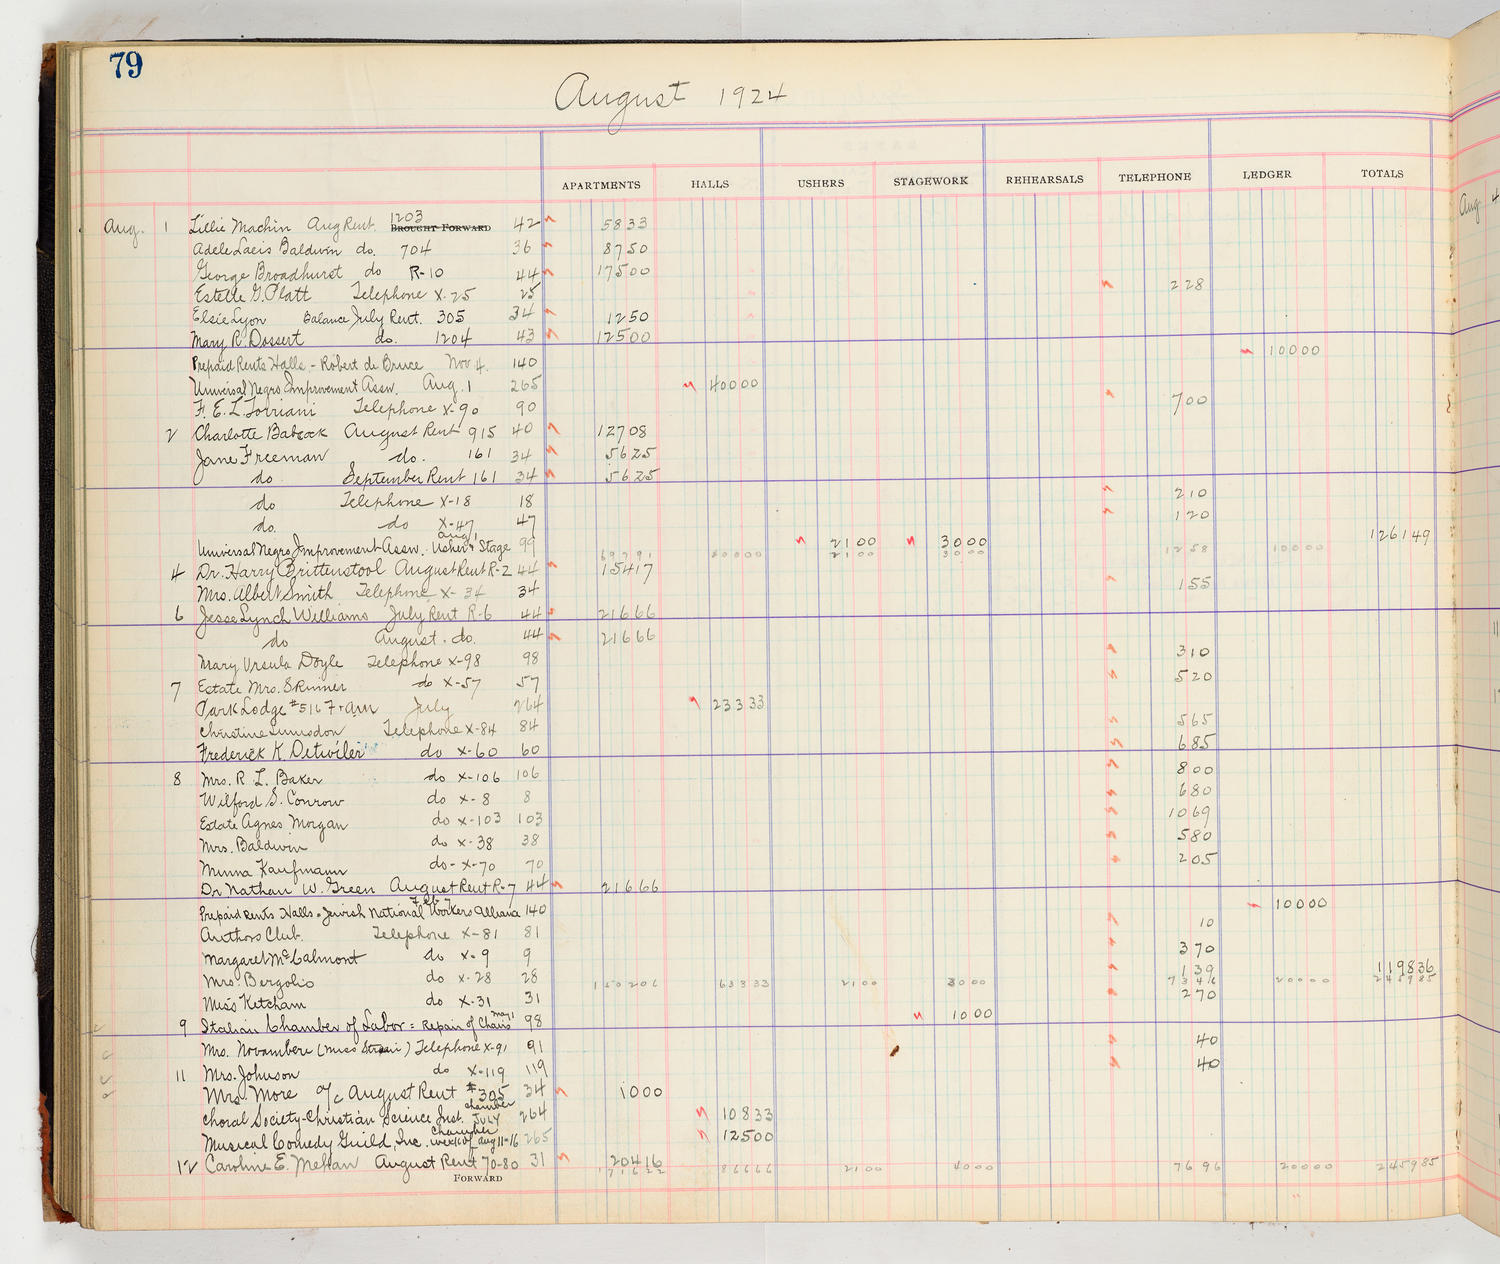 79
August 1924
APARTMENTS HALLS USHERS STAGEWORK REHEARSALS TELEPHONE LEDGER TOTALS
Aug. 1 Lillie Machin Aug Rent. 1203 BROUGHT FORWARD 42 5833
Adele Laeis Baldwin do. 704 36 8750
George Broadhurst do R-10 44 17500
Estelle G. Platt Telephone X-25 25 228
Elsie Lyon Balance July Rent. 305 34 1250
Mary R. Dossert do. 1204 43 12500
Prepaid Rents Halls - Robert de Bruce Nov 4. 140 10000
Universal Negro Improvement Assn. Aug. 1 265 40000
F. E. L. Torriani Telephone X-90 90 700
2 Charlotte Babcock August Rent 915 40 12708
Jane Freeman do. 161 34 5625
do September Rent 161 34 5625
do Telephone X-18 18 210
do. do X-47 47 120
Universal Negro Improvement Assn. Aug 1 Ushers Stage 99 2100 3000 126149
69291 40000 2100 3000 1258 10000
4 Dr. Harry Brittenstool August Rent R-2 44 15417
Mrs. Albert Smith Telephone X-34 34 155
6 Jesse Lynch Williams July Rent R-6 44 21666
do August. do. 44 21666
Mary Ursula Doyle Telephone X-98 98 310
7 Estate Mrs. Skinner do X-57 57 520
Park Lodge #516 F & AM July 264 23333
Christine Telephone X-84 84 565
Frederick K. Detwiler do X-60 60 685
8 Mrs. R. L. Baker do X-106 106 800
Wilford S. Conrow do X-8 8 680
Estate Agnes Morgan do X-103 103 1069
Mrs. Baldwin do X-38 38 580
Minna Kaufmann do - X-70 70 205
Dr Nathan W. Green August Rent R-7 44 21666
Prepaid Rents Halls - Jewish National Workers Alliance Feb 7 140 10000
Authors Club. Telephone X-81 81 10
Margaret McCalmont do X-9 9 370
Mrs. Bergolio do X-28 28 139 119836
150206 63333 2100 3000 7346 20000 245985
Miss Ketcham do X-31 31 270
9 Italian Chamber of Labor = Repair of Chairs May 1 98 1000
Mrs. Novambere (Miss ) Telephone X-91 91 40
11 Mrs. Johnson do X-119 119 40
Mrs. More a/c August Rent #305 34 1000
Choral Society-Christian Science Inst. Chamber July 264 10833
Musical Comedy Guild, Inc. Chamber week of Aug 11-16 265 12500
12 Caroline E. Mehan August Rent 70-80 31 20416
FORWARD 171622 86666 2100 4000 7696 20000 245985
Aug. 4